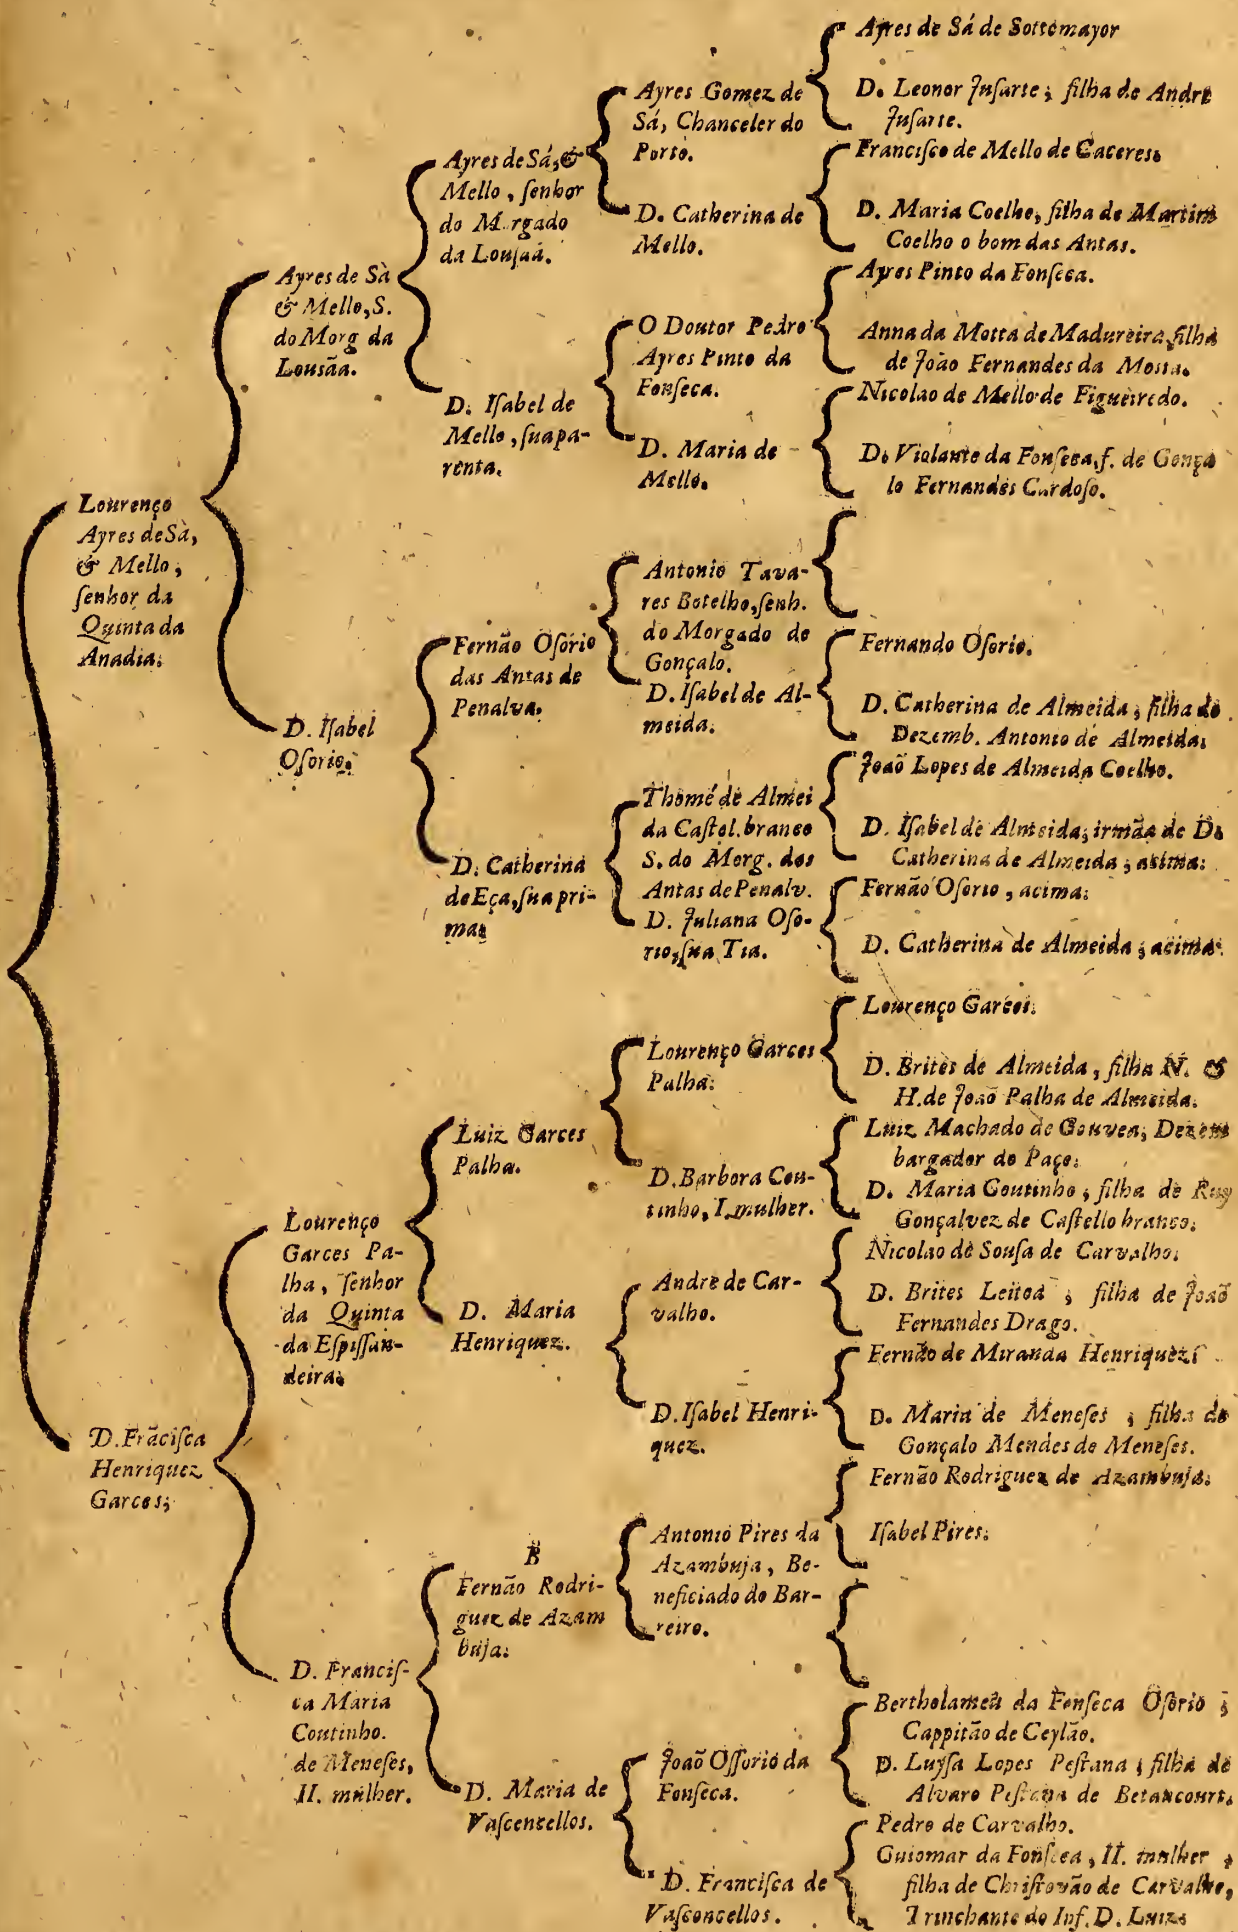 Lourenço
Ayres de Sà,
& Mello,
ſenhor da
Quinta da
Anadia.
D. Frãciſca
Henriquez
Garces,
Ayres de Sà
& Mello, S.
do Morg da
Lousãa.
D. Iſabel
Oſorio.
Lourenço
Garces Pa-
lha, ſenhor
da Quinta
da Eſpiſſan-
deira.
D. Franciſ-
ca Maria
Coutinho.
de Meneſes,
II. mulher.
Ayres de Sá, &
Mello, ſenhor
do M rgado
da Louſaã.
D. Iſabel de
Mello, ſua pa-
renta.
Fernão Oſorio
das Antas de
Penalva.
D. Catherina
de Eça, ſua pri-
ma.
Luiz Garces
Palha.
D. Maria
Henriquez.
B
Fernão Rodri-
guez de Azam
buja.
D. Maria de
Vaſcencellos.
Ayres Gomez de
Sá, Chanceler do
Porto.
D. Catherina de
Mello.
O Doutor Pedro
Ayres Pinto da
Fonſeca.
D. Maria de
Mello.
Antonio Tava-
res Botelho, ſenh.
do Morgado de
Gonçalo.
D. Iſabel de Al-
meida.
Thomé de Almei
da Caſtel. branco
S. do Morg. das
Antas de Penalv.
D. Juliana Oſo-
rio, ſua Tia.
Lourenço Garces
Palha.
D. Barbora Cou-
tinho, I. mulher.
Andre de Car-
valho.
D. Iſabel Henri-
quez.
Antonio Pires da
Azambuja, Be-
neficiado do Bar-
reiro.
João Oſſorio da
Fonſeca.
D. Franciſca de
Vaſconcellos.
Ayres de Sá de Sottomayor
D. Leonor Juſarte, filha de Andre
Juſarte.
Franciſco de Mello de Caceres.
D. Maria Coelho, filha de Martim
Coelho o bom das Antas.
Ayres Pinto da Fonſeca.
Anna da Motta de Madureira, filha
de João Fernandes da Motta.
Nicolao de Mello de Figueiredo.
D. Violante da Fonſeca, f. de Gonça
lo Fernandes Cardoſo.
Fernando Oſorio.
D. Catherina de Almeida, filha do
Dezemb. Antonio de Almeida.
João Lopes de Almeida Coelho.
D. Iſabel de Almeida, irmãa de D.
Catherina de Almeida, acima.
Fernão Oſorio, acima.
D. Catherina de Almeida, acima.
Lourenço Garces.
D. Brites de Almeida, filha N. &
H. de João Palha de Almeida.
Luiz Machado de Gouvea, Dezem
bargador do Paço.
D. Maria Coutinho, filha de Ruy
Gonçalvez de Caſtello branco.
Nicolao de Souſa de Carvalho.
D. Brites Leitoa, filha de João
Fernandes Drago.
Fernão de Miranda Henriquez.
D. Maria de Meneſes, filha de
Gonçalo Mendes de Meneſes.
Fernão Rodriguez de Azambuja.
Iſabel Pires.
Bertholameu da Fonſeca Oſorio,
Cappitão de Ceylão.
D. Luyſa Lopes Peſtana, filha de
Alvaro Peſtana de Betancourt.
Pedro de Carvalho.
Guiomar da Fonſeca, II. mulher,
filha de Chriſtovão de Carvalho,
Trinchante do Inf. D. Luiz.